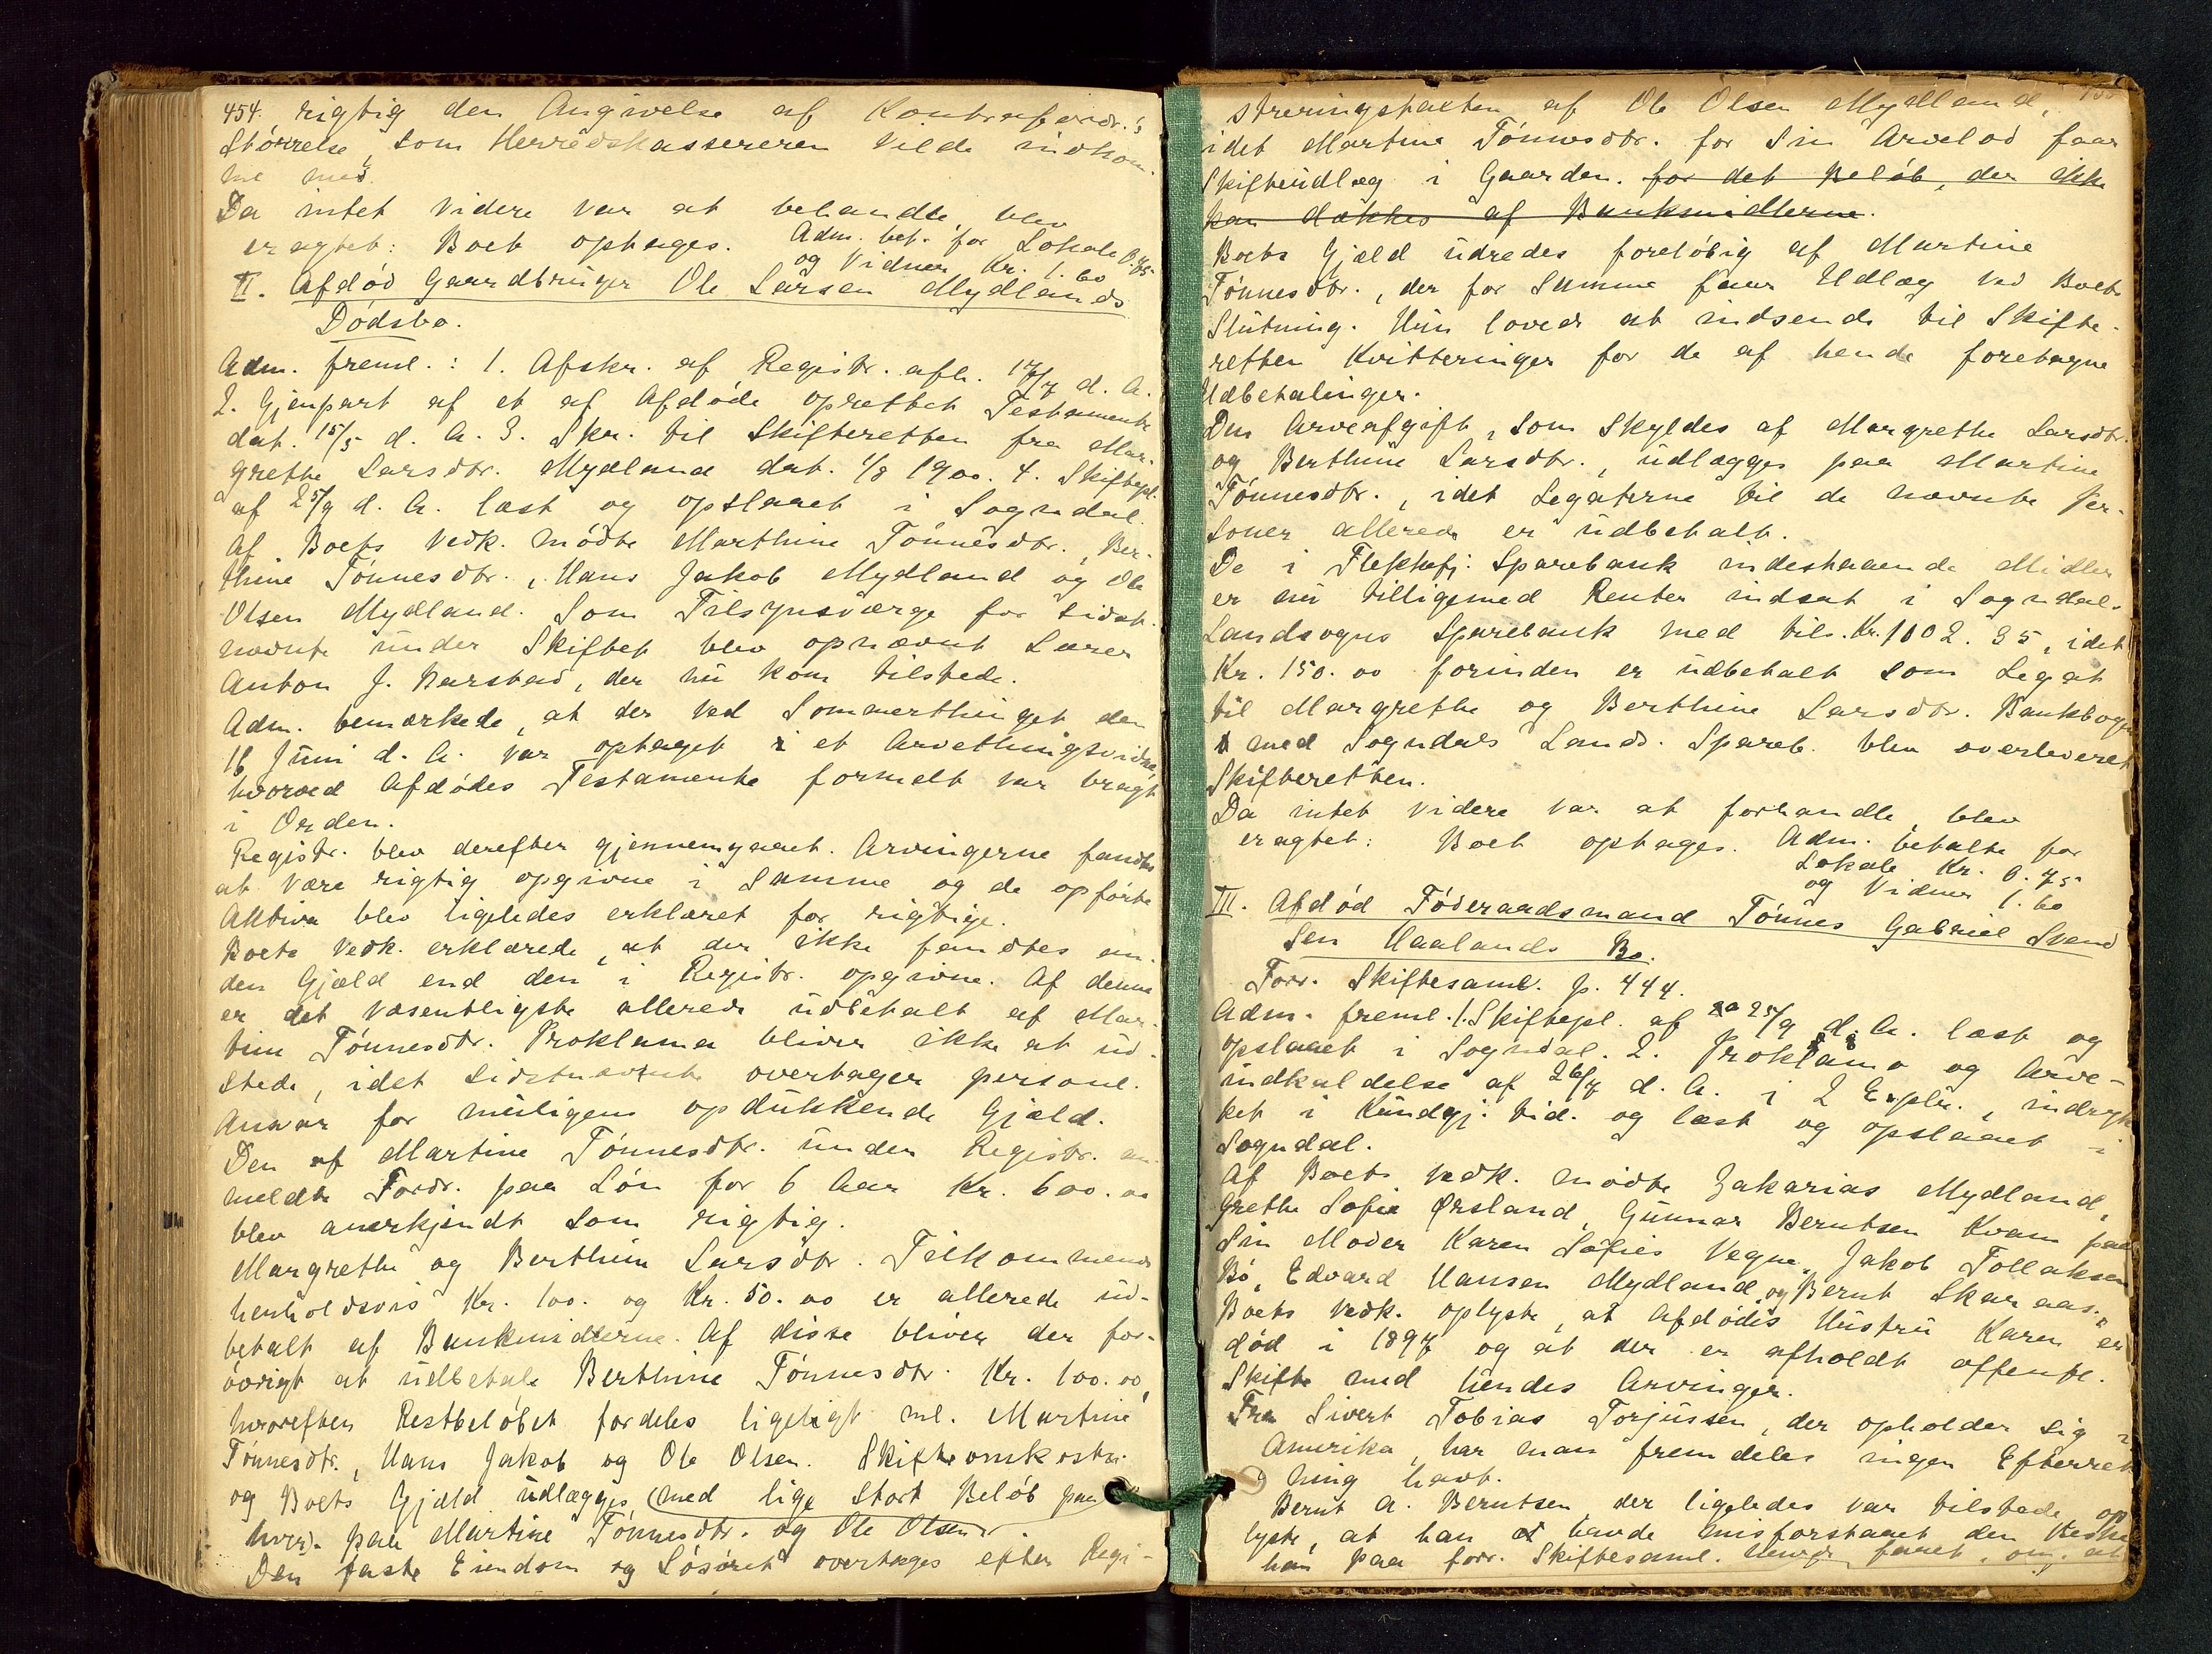 454. rigtig den Angivelse af Kontrafordr.'s
Størrelse, som Herredskassereren vilde indkom-
me med.
Da intet videre var at behandle, blev
eragtet: Boet optages. Adm. bet. for Lokale 0.75
og Vidner Kr. 1.60
II. Afdød Gaardbruger Ole Larsen Mydlands
Dødsbo.
Adm. freml.: 1. Afskr. af Registr. afh. 17/7 d. A.
2. Gjenpart af et af Afdøde oprettet Testamente
dat. 15/5 d. A. 3. Skr. til Skifteretten fra Mar-
grethe Larsdtr. Mydland dat. 1/8 1900. 4. Skiftepl.
af 25/9 d. A. læst og opslaaet i Sogndal.
Af Boets Vedk. mødte Marthine Tønnesdtr., Ber-
thine Tønnesdtr., Hans Jakob Mydland og Ole
Olsen Mydland. Som Tilsynsværge for sidst-
nævnte under Skiftet blev opnævnt Lærer
Anton J. Barstad, der nu kom tilstede.
Adm. bemærkede, at der ved Sommerthinget den
16 Juni d. A. var optaget et Arvethingsvidne,
hvorved Afdødes Testamente formelt var bragt
i Orden.
Registr. blev derefter gjennemgaaet. Arvingerne fandtes
at være rigtig opgivne i Samme og de opførte
Aktiva blev ligeledes erklæret for rigtige.
Boets Vedk. erklærede, at der ikke fandtes an-
den Gjæld end den i Registr. opgivne. Af denne
er det væsentligste allerede udbetalt af Mar-
tine Tønnesdtr. Proklama bliver ikke at ud-
stede, idet sidstnævnte overtager personl.
Ansvar for muligens opdukkende Gjæld.
Den af Martine Tønnesdtr. under Registr. an-
meldte Fordr. paa Løn for 6 Aar Kr. 600.00
blev anerkjendt som rigtig.
Margrethe og Berthine Larsdtr. Tilkommende
henholdsvis Kr. 100. og Kr. 50.00 er allerede ud-
betalt af Bankmidlerne. Af disse bliver der for-
øvrigt at udbetale Berthine Tønnesdtr. Kr. 100.00,
hvorefter Restbeløbet fordeles ligeligt ml. Martine
Tønnesdtr., Hans Jakob og Ole Olsen. Skifteomkostn.
og Boets Gjæld udlægges (med lige stort Beløb paa
hver) paa Martine Tønnesdtr. og Ole Olsen.
Den faste Eiendom og Løsøret overtages efter Regi-
streringstaxten af Ole Olsen Mydland,
idet Martine Tønnesdtr. for Sin Arvelod faar
Skifteudlæg i Gaarden. for det Beløb, der ikke
kan dækkes af Bankmidlerne.
Boets Gjæld udredes foreløbig af Martine
Tønnesdtr., der for Samme faar Udlæg ved Boets
Slutning. Hun lovede at indsende til Skifte-
retten Kvitteringer for de af hende foretagne
Udbetalinger.
Den Arveafgift, som skyldes af Margrethe Larsdtr.
og Berthine Larsdtr., udlægges paa Martine
Tønnesdtr., idet Legaterne til de nævnte Per-
soner allerede er udbetalt.
De i Flekkefj. Sparebank indestaaende Midler
er nu tilligemed Renter indsat i Sogndals
Landsogns Sparebank med tils. Kr. 1102.35, idet
Kr. 150.00 forinden er udbetalt som Legat
til Margrethe og Berthine Larsdtr. Bankbogen
med Sogndals Lands. Spareb. blev overleveret
Skifteretten.
Da intet videre var at forhandle, blev
eragtet: Boet optages. Adm. betalte for
Lokale Kr. 0.75
og Vidner 1.60
III. Afdød Føderaadsmand Tønnes Gabriel Svend
sen Haalands Bo.
Forr. Skiftesaml. p. 444.
Adm. freml. 1. Skiftepl. af 25/9 d. A. læst og
opslaaet i Sogndal. 2. Proklama og Arve-
indkaldelse af 26/7 d. A. i 2 Explr., indryk
ket i Kundgj. tid. og læst og opslaaet i
Sogndal.
Af Boets Vedk. mødte Zakarias Mydland,
Grethe Sofie Ørsland, Gunnar Berntsen Kvam paa
Sin Moder Karen Sofies Vegne, Jakob Tollaksen
Bø, Edvard Hansen Mydland og Bernt Skaraas.
Boets Vedk. oplyste, at Afdødes Hustru Karen er
død i 1897 og at der er afholdt offentl.
Skifte med hendes Arvinger.
Fra Sivert Tobias Torjussen, der opholder sig i
Amerika, har man fremdeles ingen Efterret
ning havt.
Bernt A. Berntsen der ligeledes var tilstede op
lyste, at han havde misforstaaet den Besked
han paa forr. Skiftesaml. havde faaet, om at